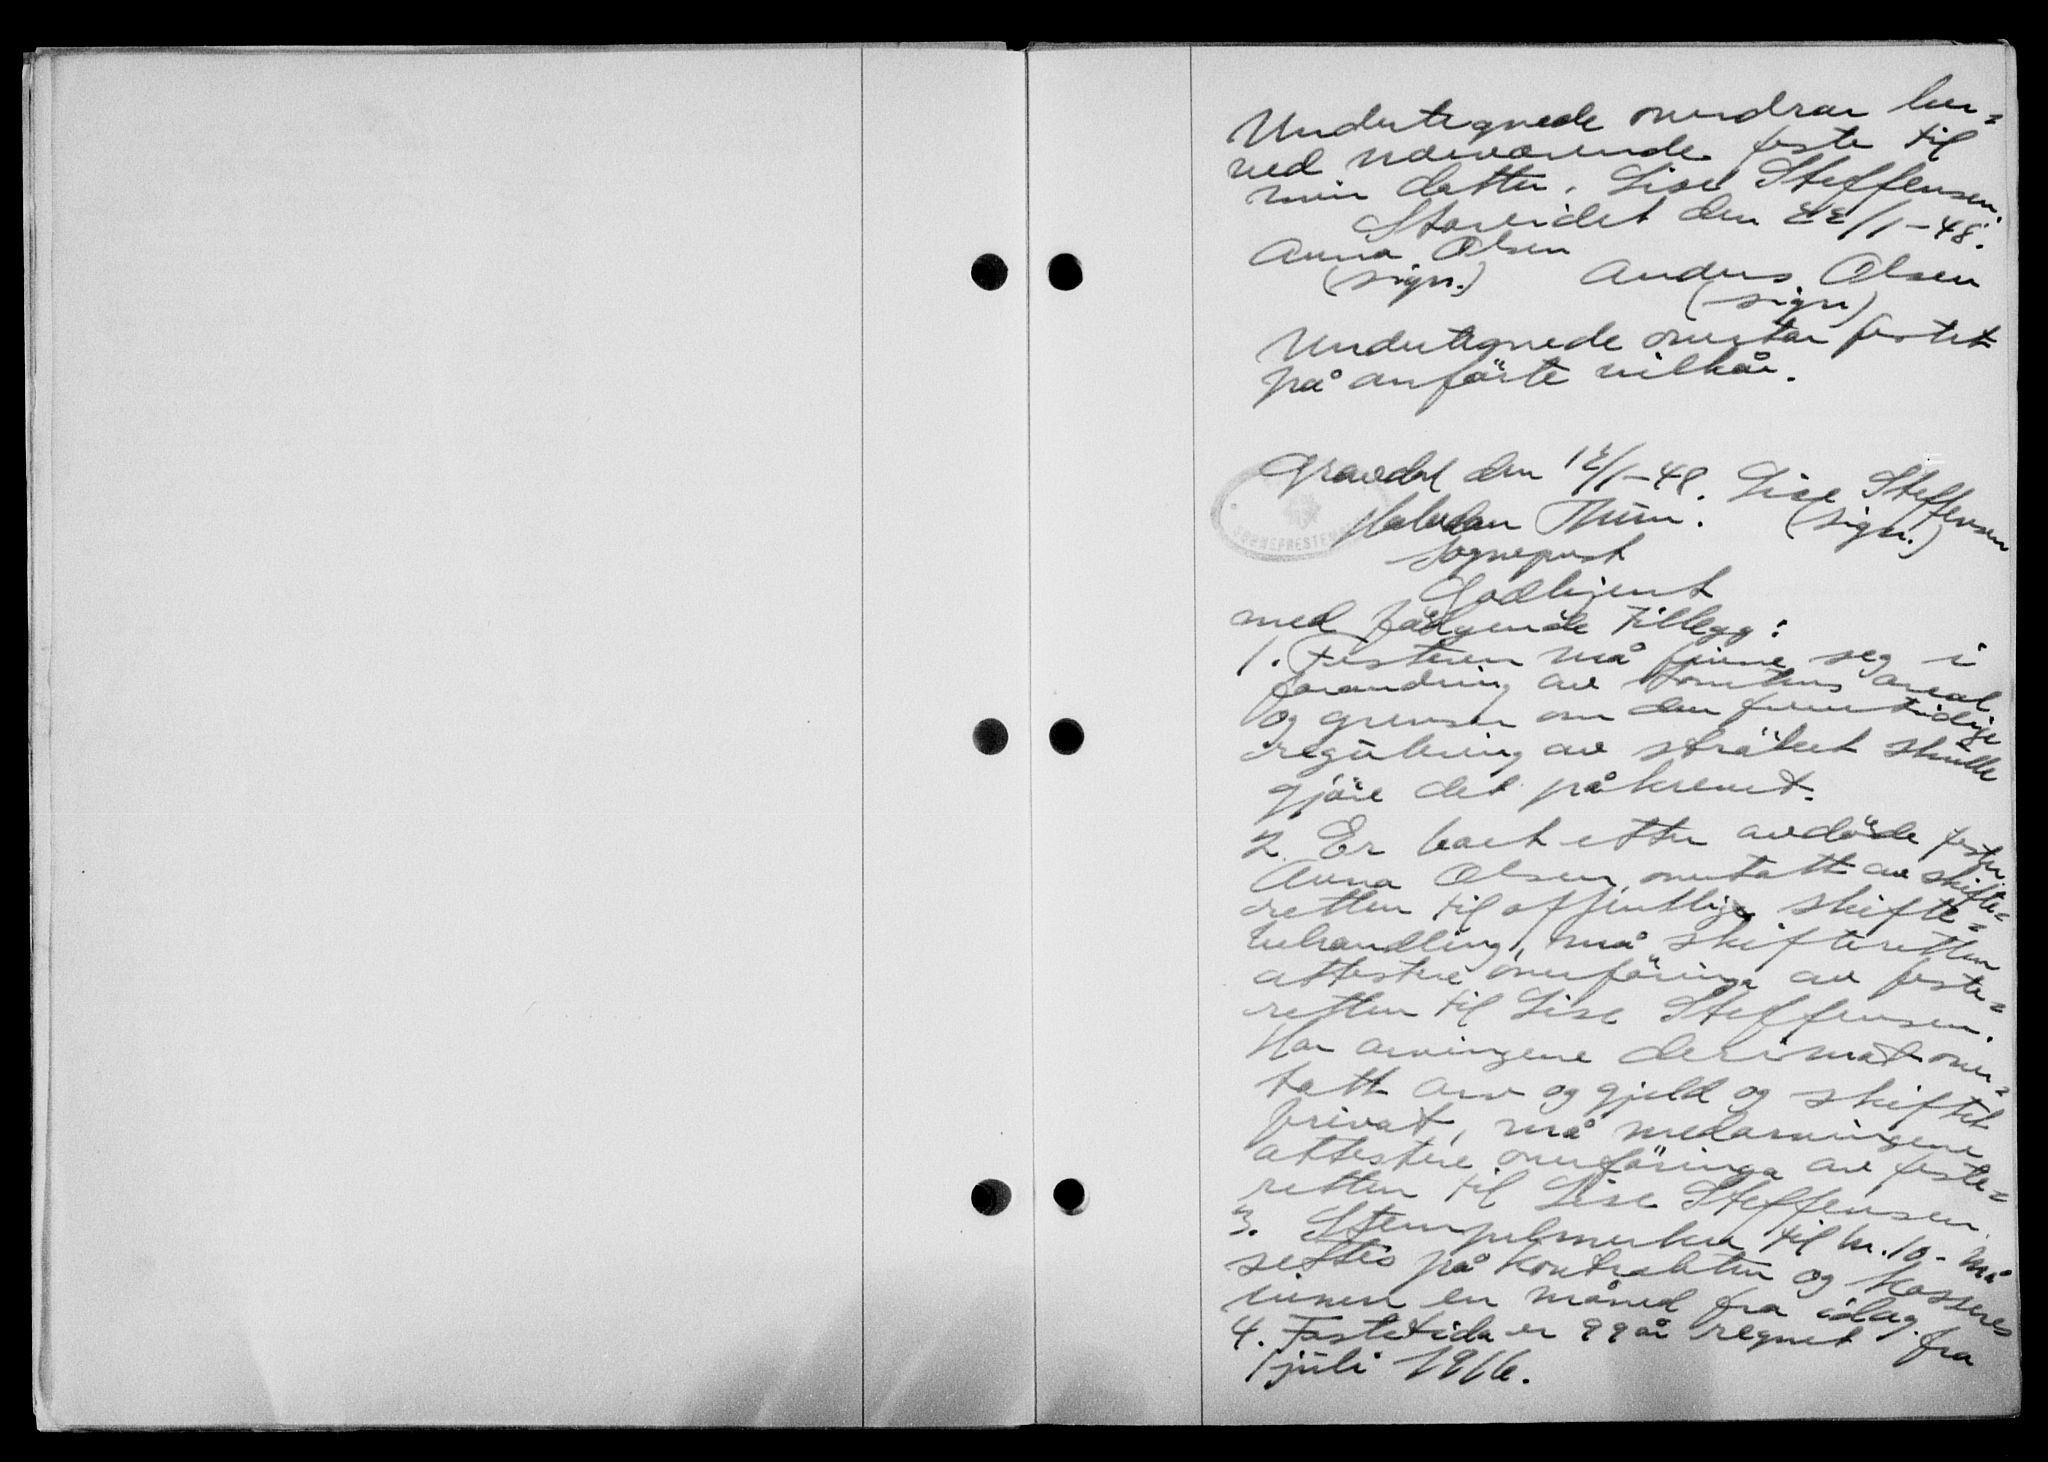 Undertegnede overdrar her=
ved nærværende feste til
min datter, Lise Steffensen.
Storeidet den 22/1-48.
Anna Olsen Anders Olsen
(sign.) (sign)
Undertegnede overtar festet
på anförte vilkår.
Gravdal den 12/1-48. Lise Steffensen
Halvdan Thum. (sign.)
SOGNEPRESTEN
Sogneprest
Godkjent
med følgende tillegg:
1. Festeren må finne seg i
forandring av tomtens areal
og grenser om den fremtidige
regulering av strøket skulle
gjöre det påkrevet.
2. Er boet etter avdöde fester
Anna Olsen, overtatt av skifte=
retten til offentlige skifte=
behandling, må skifteretten
attestere overföringa av feste=
retten til Lise Steffensen.
Har arvingene derimot over=
tatt arv og gjeld og skiftet
privat, må medarvingene
attestere overföringa av feste=
retten til Lise Steffensen.
3. Stempelmerker til kr. 10- må
settes på kontrakten og kasseres
innen en måned fra idag.
4. Festetida er 99 år regnet fra
1 juli 1916.